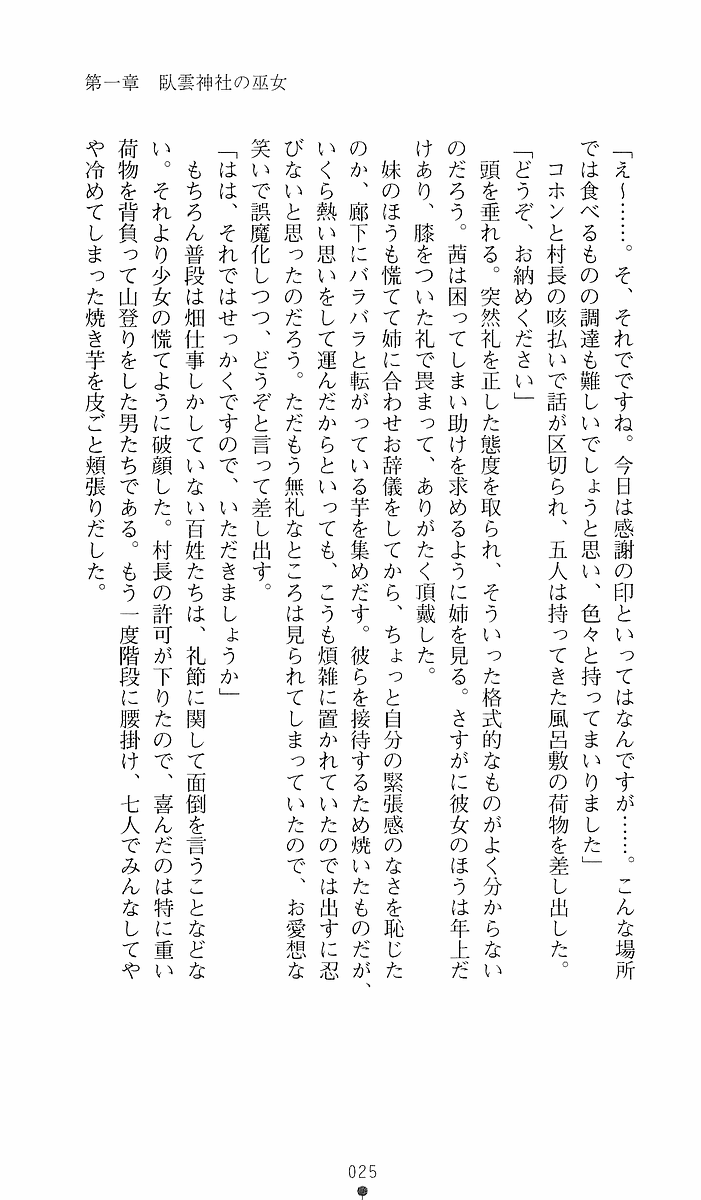 第一章　臥雲神社の巫女
「え～……。そ、それでですね。今日は感謝の印といってはなんですが……。こんな場所
では食べるものの調達も難しいでしょうと思い、色々と持ってまいりました」
　コホンと村長の咳払いで話が区切られ、五人は持ってきた風呂敷の荷物を差し出した。
「どうぞ、お納めください」
　頭を垂れる。突然礼を正した態度を取られ、そういった格式的なものがよく分からない
のだろう。茜は困ってしまい助けを求めるように姉を見る。さすがに彼女のほうは年上だ
けあり、膝をついた礼で畏まって、ありがたく頂戴した。
　妹のほうも慌てて姉に合わせお辞儀をしてから、ちょっと自分の緊張感のなさを恥じた
のか、廊下にバラバラと転がっている芋を集めだす。彼らを接待するため焼いたものだが、
いくら熱い思いをして運んだからといっても、こうも煩雑に置かれていたのでは出すに忍
びないと思ったのだろう。ただもう無礼なところは見られてしまっていたので、お愛想な
笑いで誤魔化しつつ、どうぞと言って差し出す。
「はは、それではせっかくですので、いただきましょうか」
　もちろん普段は畑仕事しかしていない百姓たちは、礼節に関して面倒を言うことなどな
い。それより少女の慌てように破顔した。村長の許可が下りたので、喜んだのは特に重い
荷物を背負って山登りをした男たちである。もう一度階段に腰掛け、七人でみんなしてや
や冷めてしまった焼き芋を皮ごと頬張りだした。
025